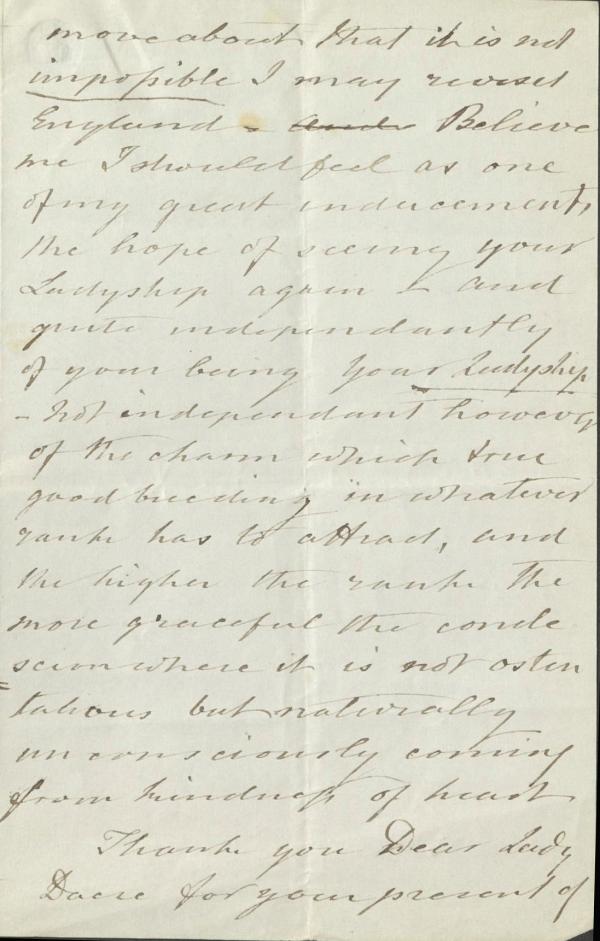 move about that it is not
impossible I may revisit
England - and Believe
me I should feel as one
of my great inducements,
the hope of seeing your
Ladyship again - and
quite independantly
of your being Your Ladyship
- Not independant however
of the charm which true
good breeding in whatever
rank has to attract, and
the higher the rank the
more graceful the conde
scion where it is not osten
=tatious but naturally
unconsciously coming
from kindness of heart
Thank you Dear Lady
Dacre for your present of